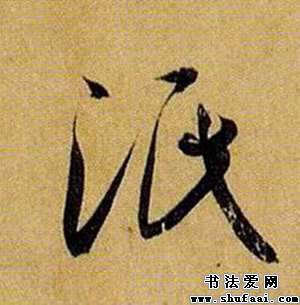 派
书法爱网
www.shufaai.com